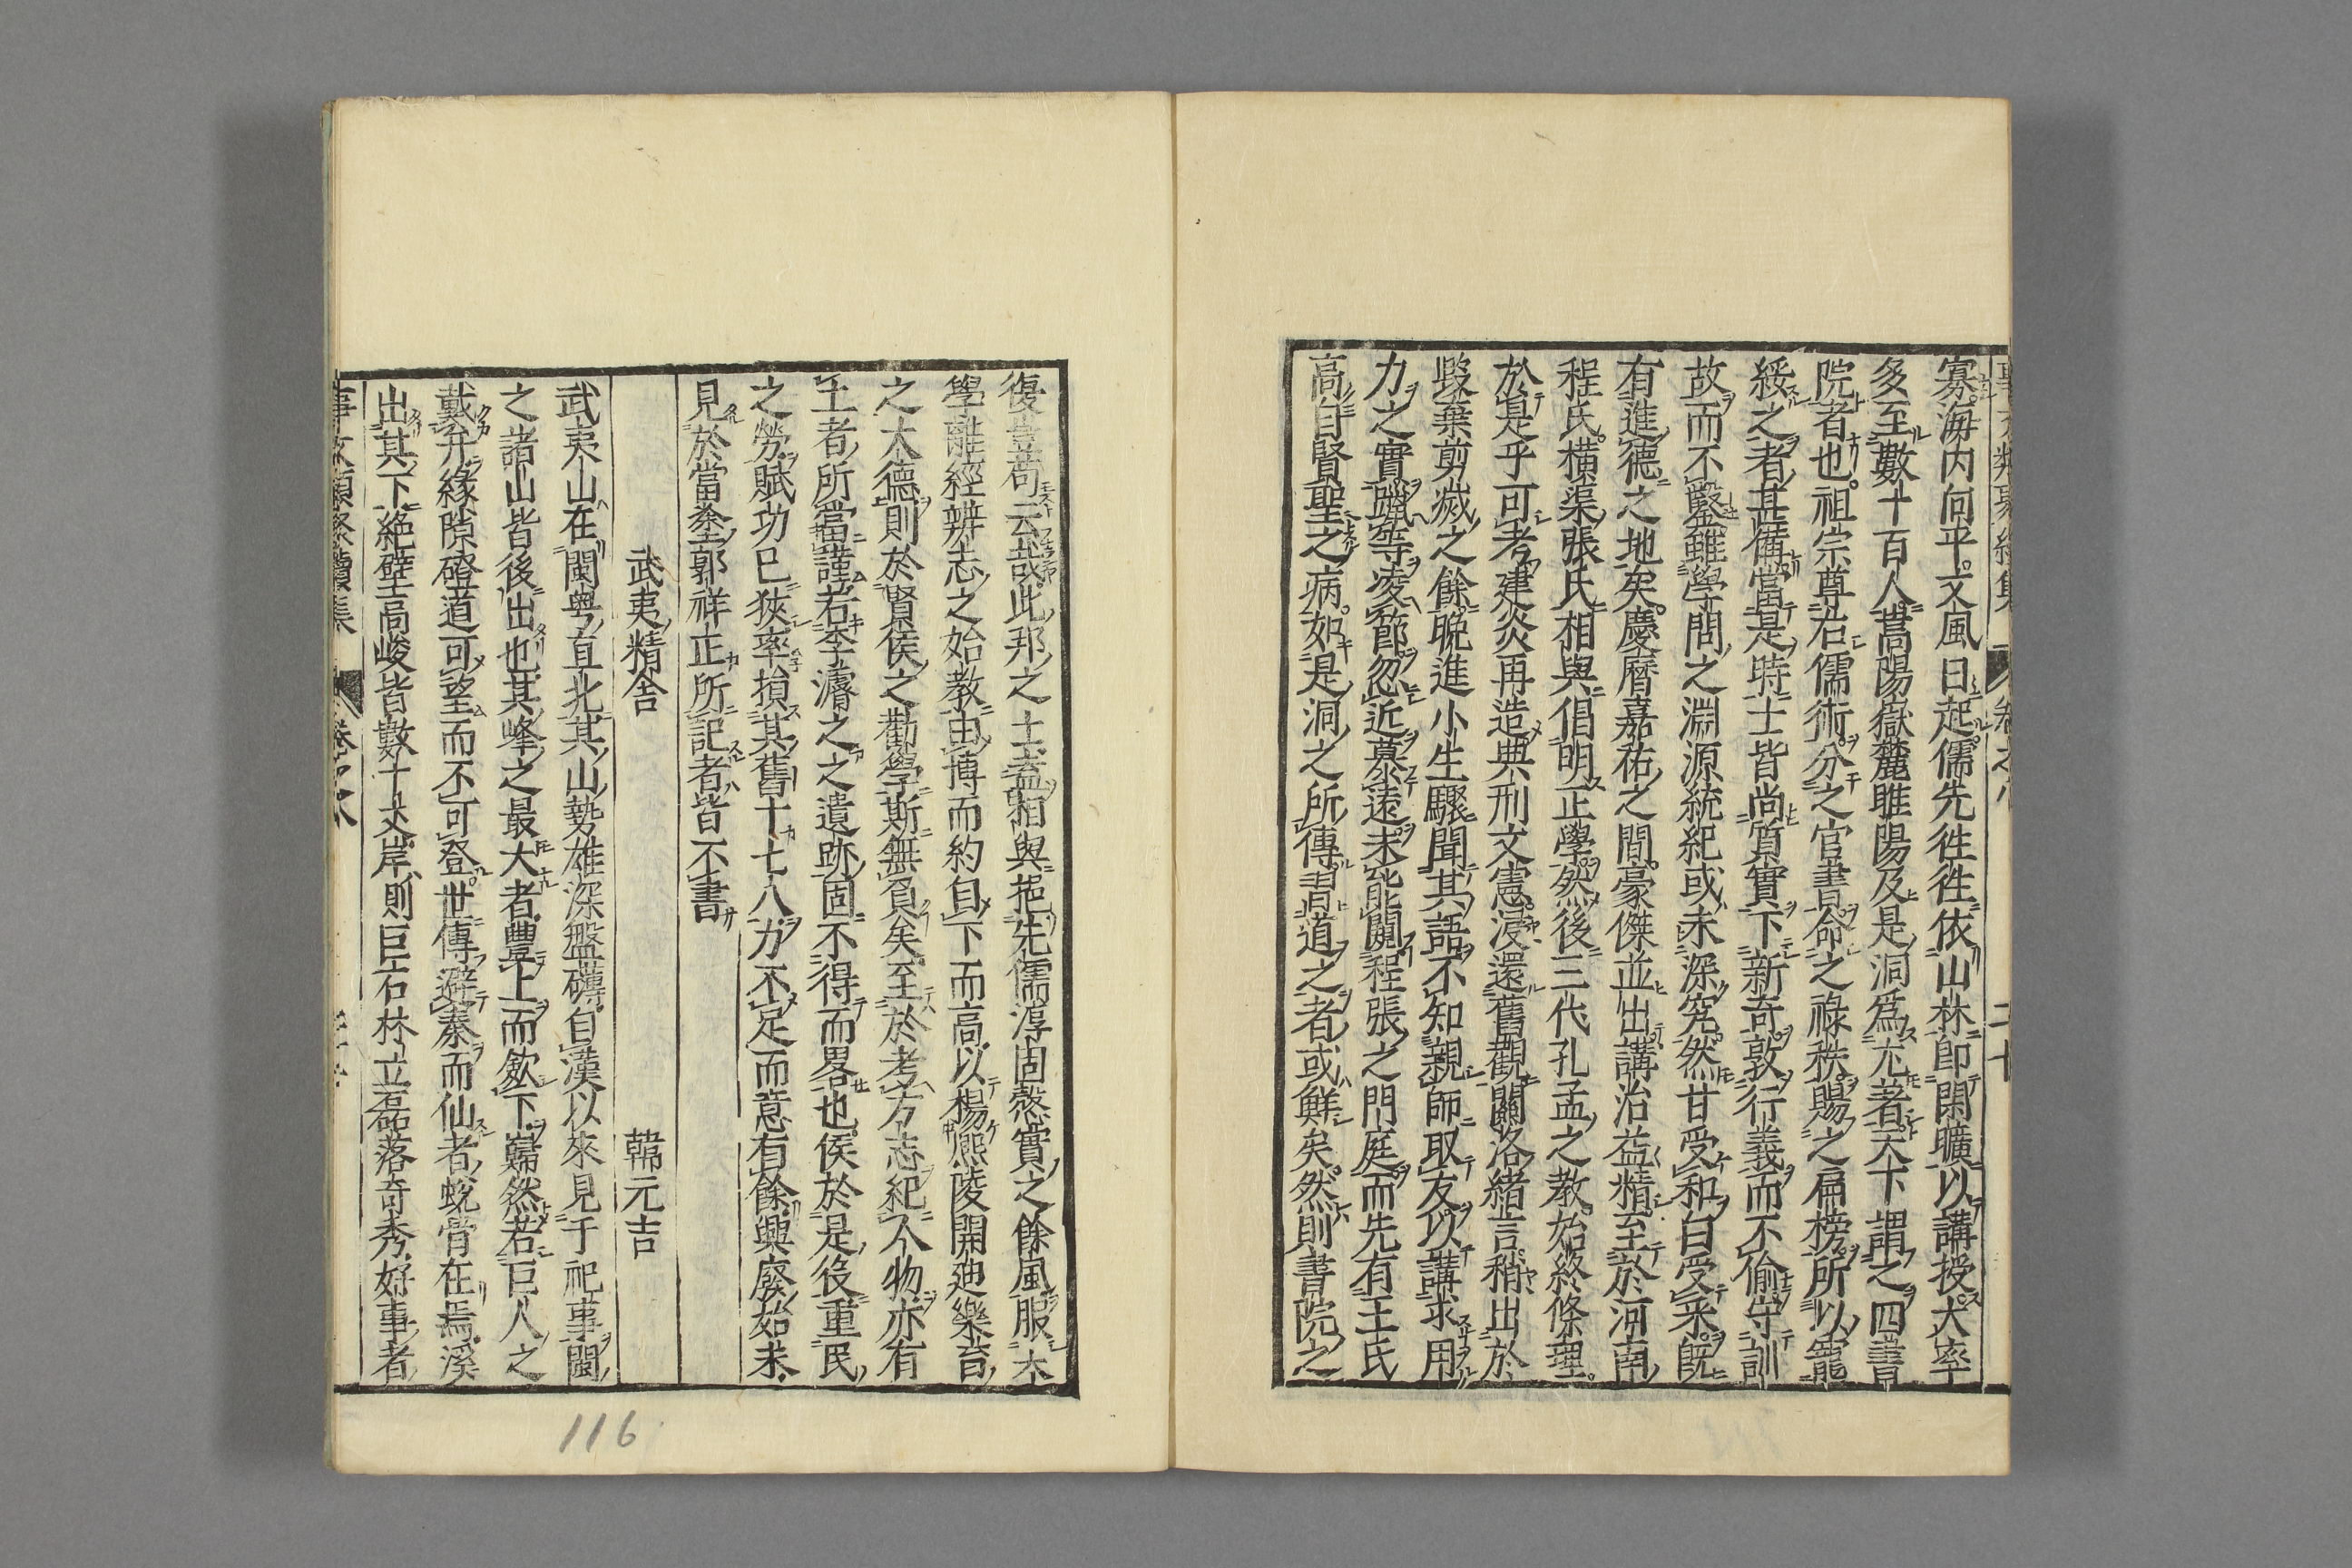 寡海内向平文風日起儒先徃徃依山林即閑曠以講授大率
多至數十百人嵩陽嶽麓睢陽及是洞爲尤著天下謂之四書
院者也祖宗尊右儒術分之官書命之祿秩賜之扁榜所以寵
綏之者甚備當是時士皆尚質實下新奇敦行義而不偷守訓
故而不鑿雖學問之淵源統紀或未深究然甘受和白受采既
有進德之地矣慶曆嘉祐之間豪傑並出講治益精至於河南
程氏橫渠張氏相與倡明正學然後三代孔孟之教始終條理
於是乎可考建炎再造典刑文憲浸還舊觀關洛緒言稍出於
毀棄剪滅之餘晚進小生驟聞其語不知親師取友以講求用
力之實躐等凌節忽近慕遠未能闚程張之門庭而先有王氏
高自賢聖之病如是洞之所傳習道之者或鮮矣然則書院之
復豈苟云哉此邦之士盍相與挹先儒淳固慤實之餘風服大
學離經辨志之始教由博而約自下而高以揚熙陵開迪樂育
之大德則於賢侯之勸學斯無負矣至於考方志紀人物亦有
土者所當謹若李濬之之遺跡固不得而畧也侯於是役重民
之勞賦功已狹率損其舊十七八力不足而意有餘興廢始末
見於當塗郭祥正所記者皆不書
武夷精舍 韓元吉
武夷山在閩粤直北其山勢雄深盤礴自漢以來見于祀事閩
之諸山皆後出也其峰之最大者豐上而歛下巋然若巨人之
戴弁緣隙磴道可望而不可登世傳避秦而仙者蛻骨在焉溪
出其下絶壁高峻皆數十丈岸則巨石林立磊落奇秀好事者
事文類聚續集
116